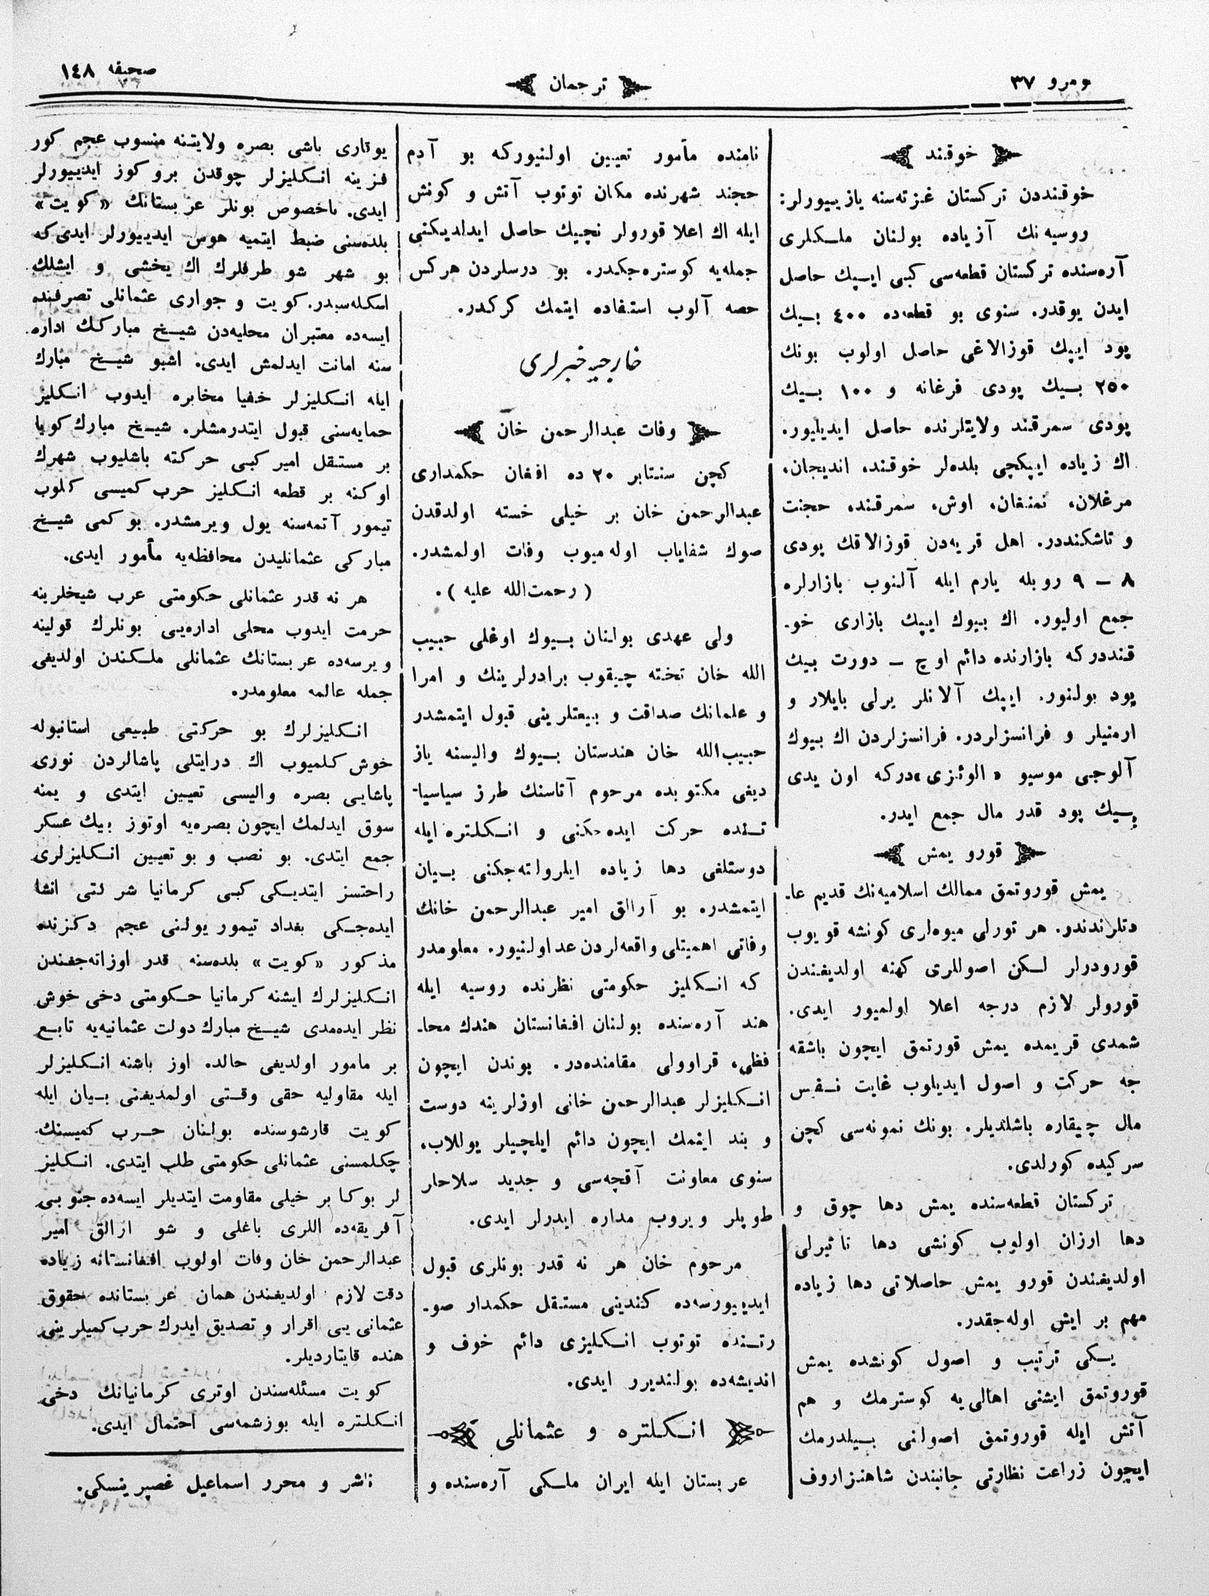 نومرو ٣٧
ترجمان
صحيفه ١٤٨
خوقند
خوقنددن تركستان غزته‌سنه يازييورلر:
روسيه‌نك آزياده بولنان ملكلرى
آره‌سنده تركستان قطعه‌سى كبى ايپك حاصل
ايدن يوقدر. سنوى بو قطعه‌ده ٤٠٠ بيك
پود ايپك قوزالاغى حاصل اولوب بونك
٢٥٠ بيك پودى فرغانه و ١٠٠ بيك
پودى سمرقند ولايتلرنده حاصل ايديليور.
اك زياده ايپكچى بلده‌لر خوقند، انديجان،
مرغلان، نمنغان، اوش، سمرقند، حجنت
و تاشكنددر. اهل قريه‌دن قوزالاقك پودى
٨ – ٩ روبله يارم ايله آلنوب بازارلره
جمع اوليور. اك بيوك ايپك بازارى خو-
قنددركه بازارنده دائم اوچ – دورت بيك
پود بولنور. ايپك آلانلر يرلى بايلار و
ارمنيلر و فرانسزلردر. فرانسزلردن اك بيوك
آلوجى موسيو «الوئزى»دركه اون يدى
بيك پود قدر مال جمع ايدر.
قورو يمش
يمش قوروتمق ممالك اسلاميه‌نك قديم عا-
دتلرندندو. هر تورلى ميوه‌لرى كونشه قويوب
قورودرلر لكن اصوللرى كهنه اولديغندن
قورولر لازم درجه اعلا اولميور ايدى.
شمدى قريمده يمش قورتمق ايچون باشقه
جه حركت و اصول ايديلوب غايت نفيس
مال چيقاره باشلنديلر. بونك نمونه‌سى كچن
سركيده كورلدى.
تركستان قطعه‌سنده يمش دها چوق و
دها ارزان اولوب كونشى دها تاثيرلى
اولديغندن قورو يمش حاصلاتى دها زياده
مهم بر ايش اوله‌جقدر.
يكى ترتيب و اصول كونشده يمش
قوروتمق ايشنى اهالى‌يه كوسترمك و هم
آتش ايله قوروتمق اصولنى بيلدرمك
ايچون زراعت نظارتى جانبندن شاهنزاروف
نامنده مأمور تعيين اولنيوركه بو آدم
حجند شهرنده مكان توتوب آتش و كونش
ايله اك اعلا قورولر نچيك حاصل ايدلديكنى
جمله‌يه كوستره‌جكدر. بو درسلردن هركس
حصه آلوب استفاده ايتمك كركدر.
خارجيه خبرلرى
وفات عبدالرحمن خان
كچن سنتابر ٢٠ ده افغان حكمدارى
عبدالرحمن خان بر خيلى خسته اولدقدن
صوك شفاياب اوله‌ميوب وفات اولمشدر.
(رحمت‌الله عليه).
ولى عهدى بولنان بيوك اوغلى حبيب
الله خان تخته چيقوب برادرلرينك و امرا
و علمانك صداقت و بيعتلرينى قبول ايتمشدر
حبيب‌الله خان هندستان بيوك واليسنه ياز
ديغى مكتوبده مرحوم آتاسنك طرز سياسيا-
تنده حركت ايده‌جكنى و انكلتره ايله
دوستلغى دها زياده ايلرولته‌جكنى بيان
ايتمشدر. بو آرالق امير عبدالرحمن خانك
وفاتى اهميتلى واقعه‌لردن عد اولنيور. معلومدر
كه انكليز حكومتى نظرنده روسيه ايله
هند آره‌سنده بولنان افغانستان هندك محا-
فظى، قراوولى مقامنده‌در. بوندن ايچون
انكليزلر عبدالرحمن خانى اوزلرينه دوست
و بند ايتمك ايچون دائم ايلچيلر يوللاب،
سنوى معاونت آقچه‌سى و جديد سلاحلر
طوپلر ويروب مداره ايدرلر ايدى.
مرحوم خان هر نه قدر بونلرى قبول
ايدييورسه‌ده كندينى مستقل حكمدار صو-
رتنده توتوب انكليزى دائم خوف و
انديشه‌ده بولنديرر ايدى.
انكلتره و عثمانلى
عربستان ايله ايران ملكى آره‌سنده و
يوقارى باشى بصره ولايتنه منسوب عجم كور
فزينه انكليزلر چوقدن برو كوز ايدييورلر
ايدى. باخصوص بونلر عربستانك «كويت»
بلده‌سنى ضبط ايتميه هوس ايدييورلر ايدى‌كه
بو شهر شو طرفلرك اك يخشى و ايشلك
اسكله‌سيدر. كويت و جوارى عثمانلى تصرفنده
ايسه‌ده معتبران محليه‌دن شيخ مباركك اداره
سنه امانت ايدلمش ايدى. اشبو شيخ مبارك
ايله انكليزلر خفيا مخابره ايدوب انكليز
حمايه‌سنى قبول ايتدرمشلر. شيخ مبارك كويا
بر مستقل امير كبى حركته باشليوب شهرك
اوكنه بر قطعه انكليز حرب كميسى كلوب
تيمور آتمه‌سنه يول ويرمشدر. بو كمى شيخ
مباركى عثمانليدن محافظه‌يه مأمور ايدى.
هر نه قدر عثمانلى حكومتى عرب شيخلرينه
حرمت ايدوب محلى اداره‌يى بونلرك قولينه
ويرسه‌ده عربستانك عثمانلى ملكندن اولديغى
جمله عالمه معلومدر.
انكليزلرك بو حركتى طبيعى استانبوله
خوش كلميوب اك درايتلى پاشالردن نورى
پاشايى بصره واليسى تعيين ايتدى و يمنه
سوق ايدلمك ايچون بصره‌يه اوتوز بيك عسكر
جمع ايتدى. بو نصب و بو تعيين انكليزلرى
راحتسز ايتديكى كبى كرمانيا شركتى انشا
ايده‌جكى بغداد تيمور يولنى عجم دكزنده
مذكور «كويت» بلده‌سنه قدر اوزانه‌جغندن
انكليزلرك ايشنه كرمانيا حكومتى دخى خوش
نظر ايده‌مدى شيخ مبارك دولت عثمانيه‌يه تابع
بر مامور اولديغى حالده. اوز باشنه انكليزلر
ايله مقاوليه حقى وقتى اولمديغنى بيان ايله
كويت قارشوسنده بولنان حرب كميسنك
چكلمسنى عثمانلى حكومتى طلب ايتدى. انكليز
لر بوكا بر خيلى مقاومت ايتديلر ايسه‌ده جنوبى
آفريقه‌ده اللرى باغلى و شو ارالق امير
عبدالرحمن خان وفات اولوب افغانستانه زياده
دقت لازم اولديغندن همان عربستانده حقوق
عثمانى‌يى اقرار و تصديق ايدرك حرب كميلرينى
هنده قايتارديلر.
كويت مسئله‌سندن اوترى كرمانيانك دخى
انكلتره ايله بوزشمه‌سى احتمال ايدى.
ناشر و محرر اسماعيل غصپرينسكى.